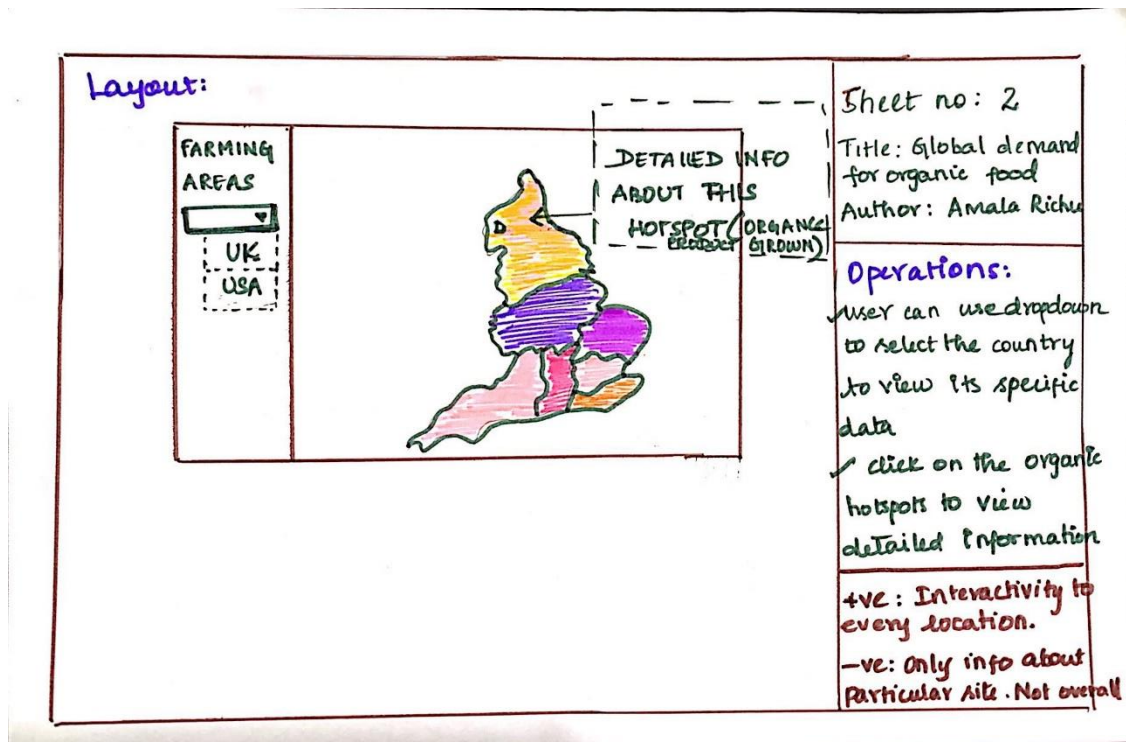 Layout:
FARMING
AREAS
UK
USA
DETAILED INFO
ABOUT THIS
HOTSPOT (ORGANIC
PRODUCT GROWN)
Sheet no: 2
Title: Global demand
for organic food
Author: Amala Richu
Operations:
✓user can use dropdown
to select the country
to view its specific
data
✓ click on the organic
hotspots to view
detailed information
+ve: Interactivity to
every location.
-ve: Only info about
particular site. Not overall